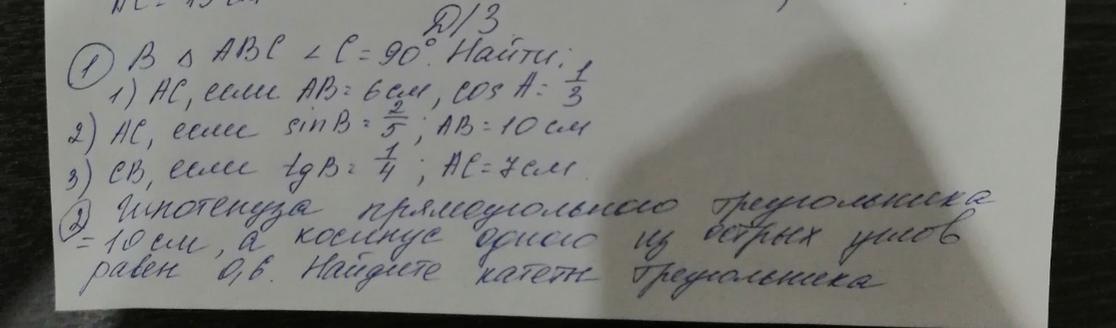 Д/З
① В △ ABC ∠C = 90°. Найти:
1) AC, если AB = 6 см, cos A = 1/3
2) AC, если sin B = 2/5; AB = 10 см
3) CB, если tg B = 1/4; AC = 7 см.
② Гипотенуза прямоугольного треугольника
= 10 см, а косинус одного из острых углов
равен 0,6. Найдите катеты треугольника